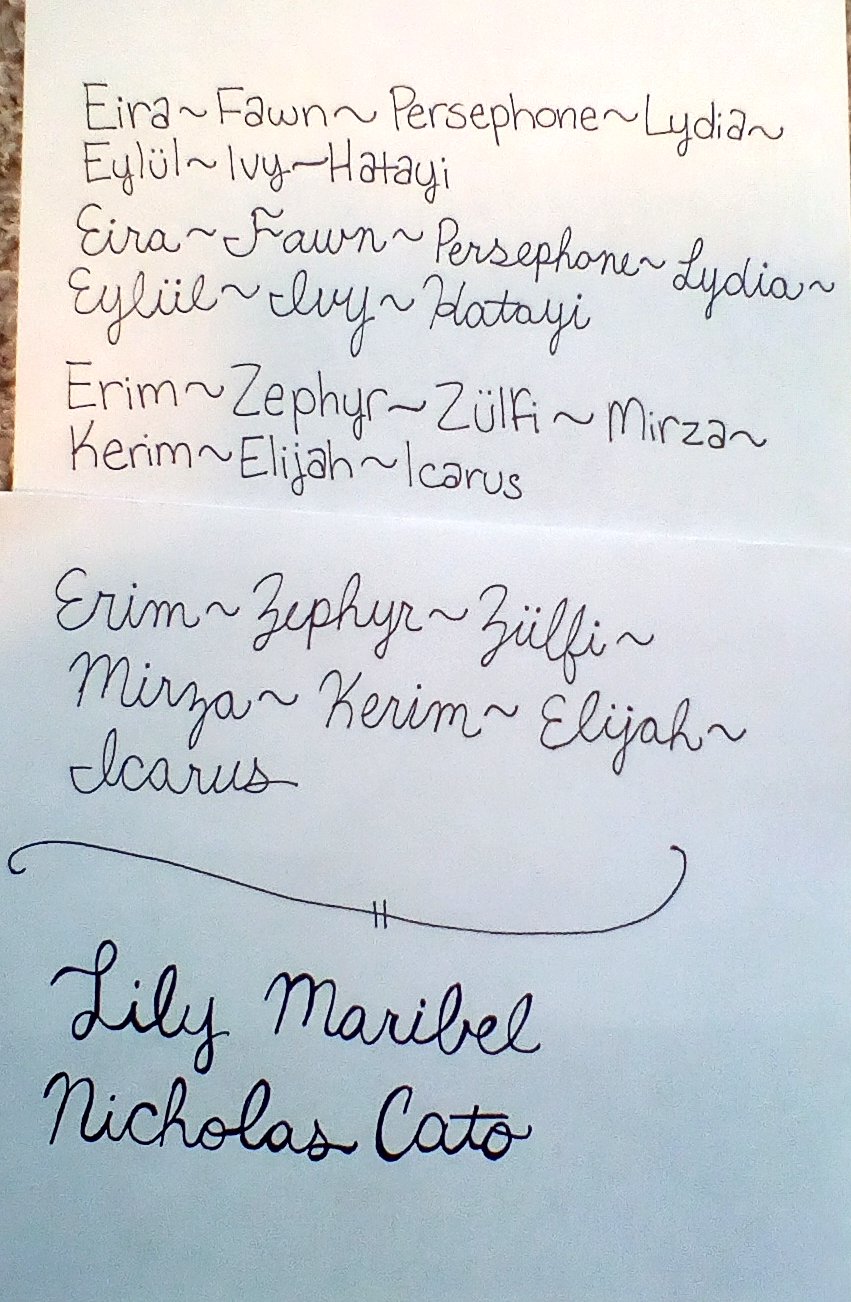 Eira~Fawn~Persephone~Lydia~
Eylül~Ivy~Hatayi
Eira~Fawn~Persephone~Lydia~
Eylül~Ivy~Hatayi
Erim~Zephyr~Zülfi~Mirza~
Kerim~Elijah~Icarus
Erim~Zephyr~Zülfi~
Mirza~Kerim~Elijah~
Icarus
Lily Maribel
Nicholas Cato